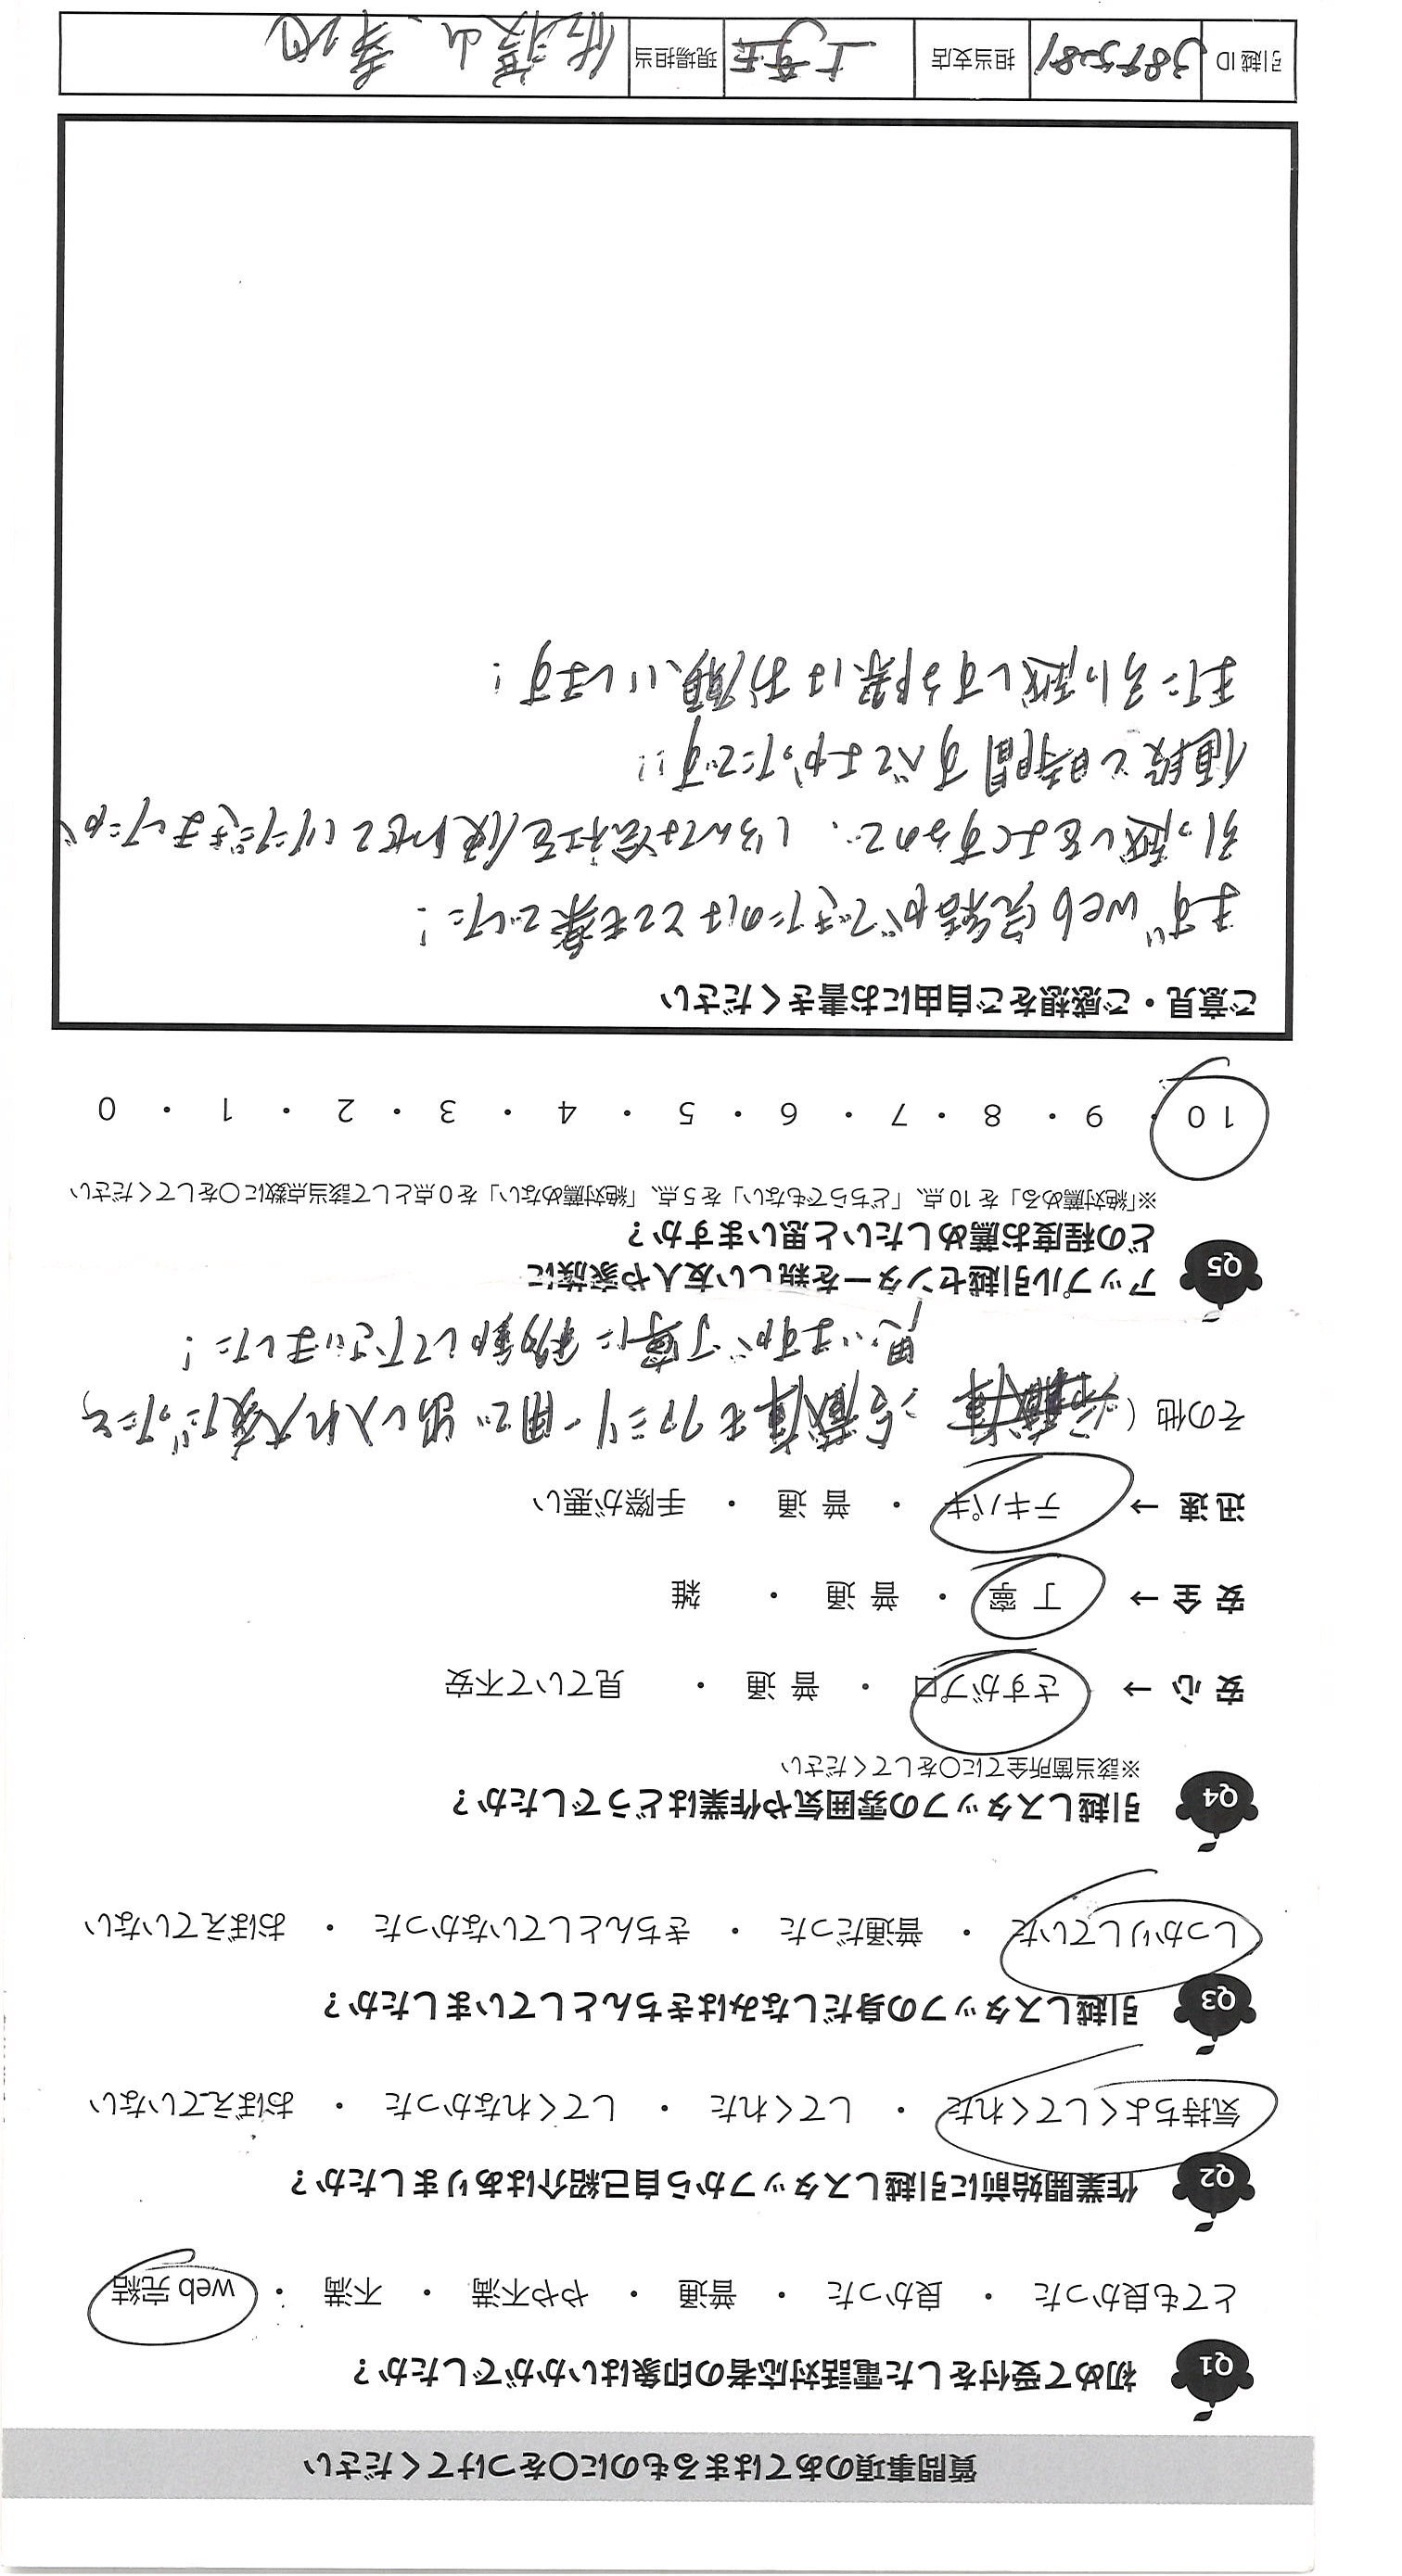 質問事項のあてはまるものに〇をつけてください
Q1 初めて受付をした電話対応者の印象はいかがでしたか？
とても良かった ・ 良かった ・ 普通 ・ やや不満 ・ 不満 ・ web 完結
Q2 作業開始前に引越しスタッフから自己紹介はありましたか？
気持ちよくしてくれた ・ してくれた ・ してくれなかった ・ おぼえていない
Q3 引越しスタッフの身だしなみはきちんとしていましたか？
しっかりしていた ・ 普通だった ・ きちんとしていなかった ・ おぼえていない
Q4 引越しスタッフの雰囲気や作業はどうでしたか？
※該当箇所全てに〇をしてください
安 心 → さすがプロ ・ 普 通 ・ 見ていて不安
安 全 → 丁 寧 ・ 普 通 ・ 雑
迅 速 → テキパキ ・ 普 通 ・ 手際が悪い
その他（ 冷蔵庫もファミリー用で出し入れ大変だったと
思いますが丁寧に移動して下さいました！
Q5 アップル引越センターを親しい友人や家族に
どの程度お薦めしたいと思いますか？
※「絶対薦める」を 10 点、「どちらでもない」を 5 点、「絶対薦めない」を 0 点として該当点数に〇をしてください
10 ・ 9 ・ 8 ・ 7 ・ 6 ・ 5 ・ 4 ・ 3 ・ 2 ・ 1 ・ 0
ご意見・ご感想をご自由にお書きください
まず web 完結ができたのはとても楽でした！
引っ越しをよくするので、いろんな会社を使わせていただきましたが
値段と時間すべてよかったです!!
また引っ越しする際はお願いします！
引越 ID 3895281 担当支店 現場担当